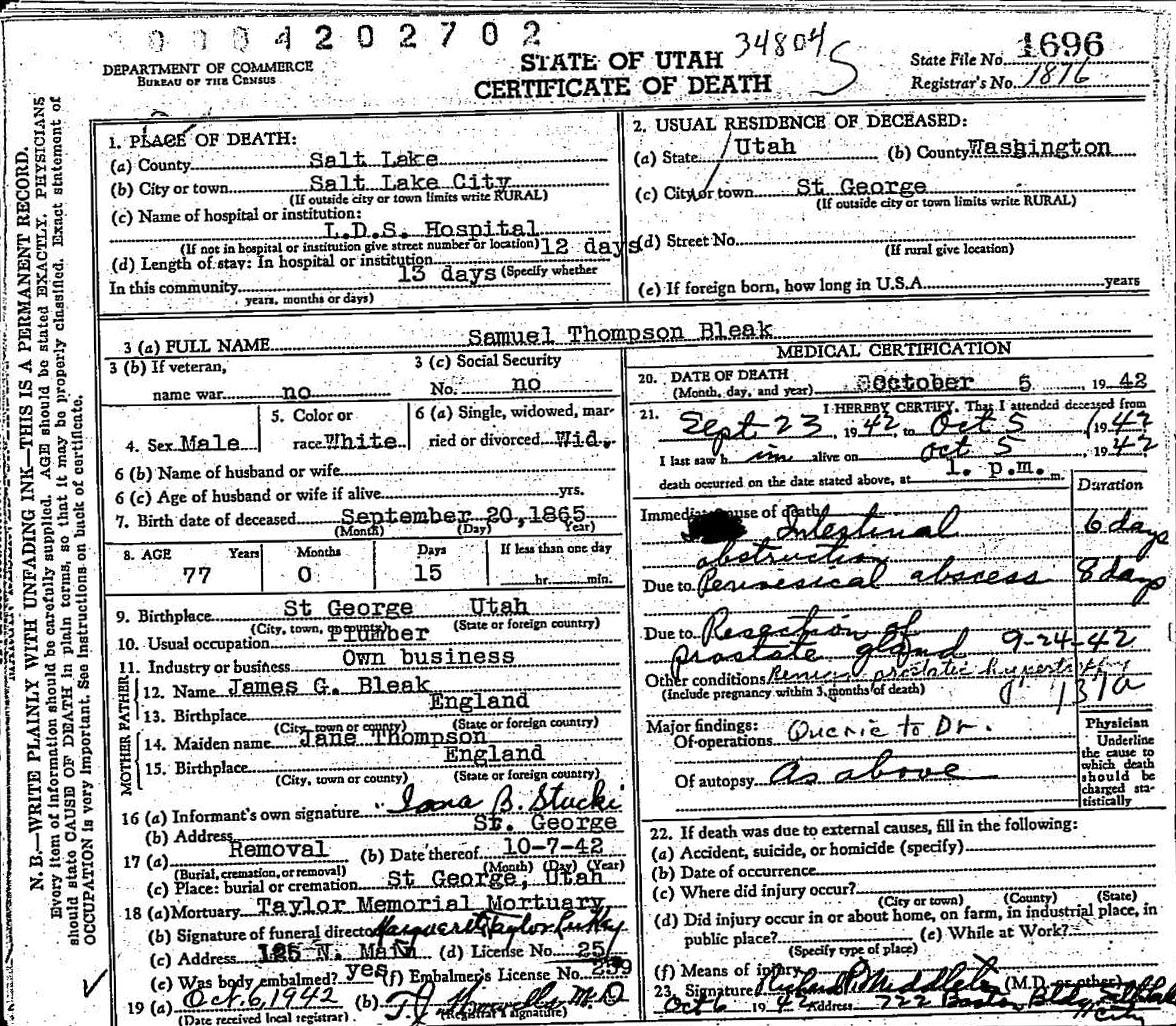 0004202702
34804 S
DEPARTMENT OF COMMERCE
BUREAU OF THE CENSUS
STATE OF UTAH
CERTIFICATE OF DEATH
State File No. 1696
Registrar's No. 1876
N. B.—WRITE PLAINLY WITH UNFADING INK—THIS IS A PERMANENT RECORD.
Every item of information should be carefully supplied. AGE should be stated EXACTLY. PHYSICIANS
should state CAUSE OF DEATH in plain terms, so that it may be properly classified. Exact statement of
OCCUPATION is very important. See instructions on back of certificate.
1. PLACE OF DEATH:
(a) County Salt Lake
(b) City or town Salt Lake City
(If outside city or town limits write RURAL)
(c) Name of hospital or institution:
L.D.S. Hospital
(If not in hospital or institution give street number or location)
(d) Length of stay: In hospital or institution 12 days
(Specify whether
In this community 13 days
years, months or days)
2. USUAL RESIDENCE OF DECEASED:
(a) State Utah (b) County Washington
(c) City or town St George
(If outside city or town limits write RURAL)
(d) Street No.
(If rural give location)
(e) If foreign born, how long in U.S.A. years
3 (a) FULL NAME Samuel Thompson Bleak
3 (b) If veteran,
name war no
3 (c) Social Security
No. no
4. Sex Male
5. Color or
race White
6 (a) Single, widowed, mar-
ried or divorced Wid.
6 (b) Name of husband or wife
6 (c) Age of husband or wife if alive yrs.
7. Birth date of deceased September 20, 1865
(Month) (Day) (Year)
8. AGE Years Months Days If less than one day
77 0 15 hr. min.
9. Birthplace St George Utah
(City, town, or county) (State or foreign country)
10. Usual occupation Plumber
11. Industry or business Own business
FATHER
12. Name James G. Bleak
13. Birthplace England
(City, town or county) (State or foreign country)
MOTHER
14. Maiden name Jane Thompson
15. Birthplace England
(City, town or county) (State or foreign country)
16 (a) Informant's own signature B. Stucki
(b) Address St. George
17 (a) Removal (b) Date thereof 10-7-42
(Burial, cremation, or removal) (Month) (Day) (Year)
(c) Place: burial or cremation St George, Utah
18 (a) Mortuary Taylor Memorial Mortuary
(b) Signature of funeral director Marguerite Taylor
(c) Address 125 N. Main (d) License No. 257
(e) Was body embalmed? yes (f) Embalmer's License No. 239
19 (a) Oct. 6, 1942 (b) M.D
(Date received local registrar) (Registrar's signature)
MEDICAL CERTIFICATION
20. DATE OF DEATH
(Month, day, and year) October 5, 1942
21. I HEREBY CERTIFY, That I attended deceased from
Sept 23, 1942, to Oct 5 1942
I last saw him alive on Oct 5, 1942
death occurred on the date stated above, at 1. p.m. m.
Duration
Immediate cause of death Intestinal 6 days
obstruction
Due to Perivesical abscess 8 days
Due to Resection of
prostate gland 9-24-42
Other conditions prostatic hypertrophy
(Include pregnancy within 3 months of death) 137a
Major findings:
Of operations Querie to Dr.
Of autopsy As above
Physician
Underline
the cause to
which death
should be
charged sta-
tistically
22. If death was due to external causes, fill in the following:
(a) Accident, suicide, or homicide (specify)
(b) Date of occurrence
(c) Where did injury occur?
(City or town) (County) (State)
(d) Did injury occur in or about home, on farm, in industrial place, in
public place? (e) While at Work?
(Specify type of place)
(f) Means of injury
23. Signature Richard P. Middleton (M.D. or other)
Oct 6 1942 Address 722 Boston Bldg City